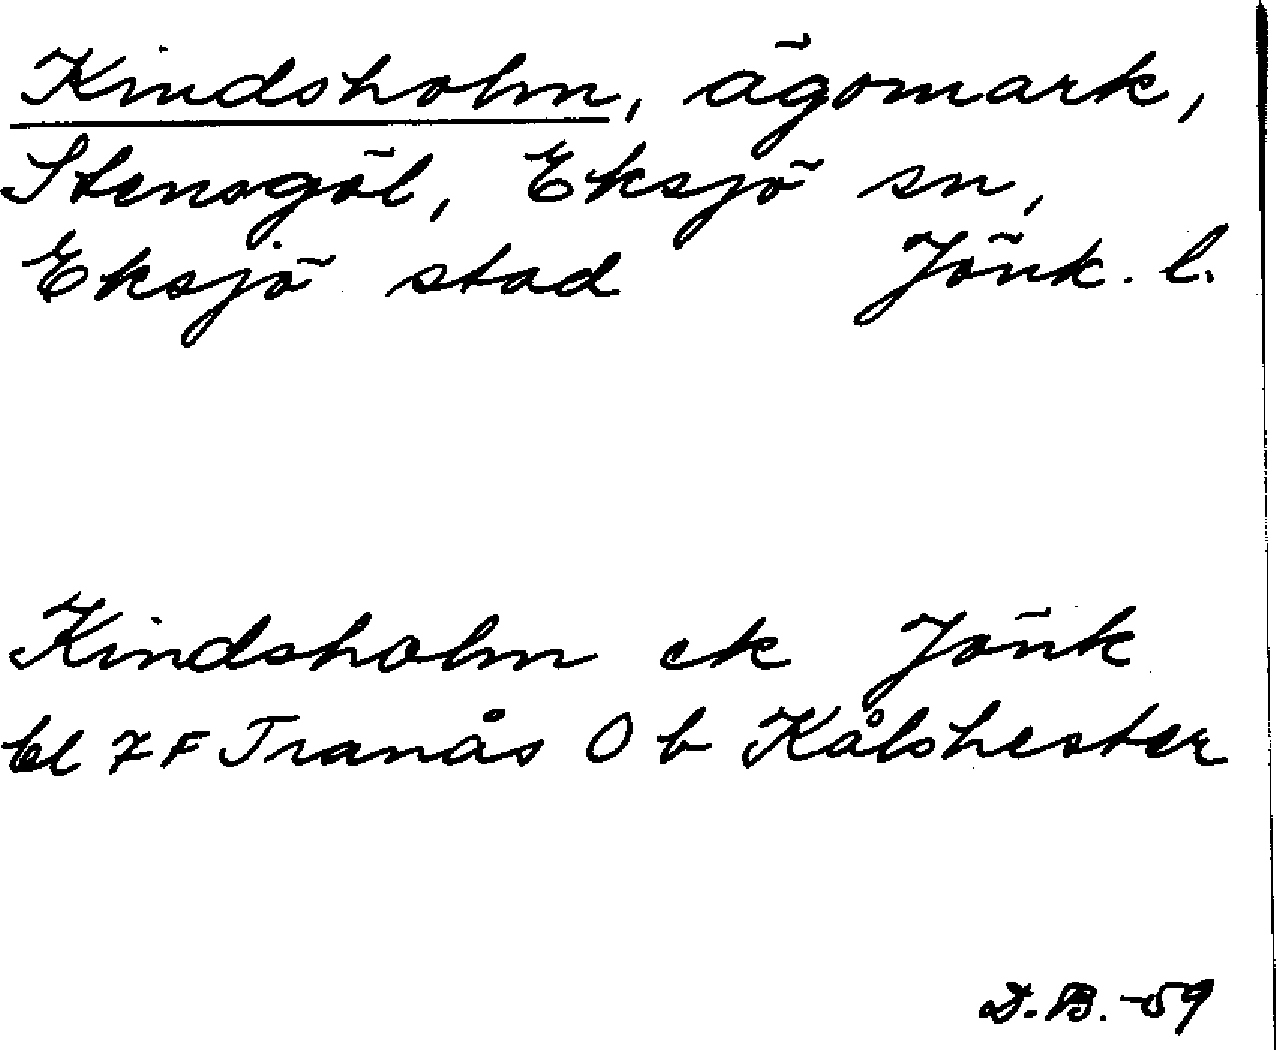 Kindsholm, ägomark,
Stensgöl, Eksjö sn,
Eksjö stad Jönk. l.
Kindsholm ek Jönk
bl 7 F Tranås O b Kålshester
D.B. -59